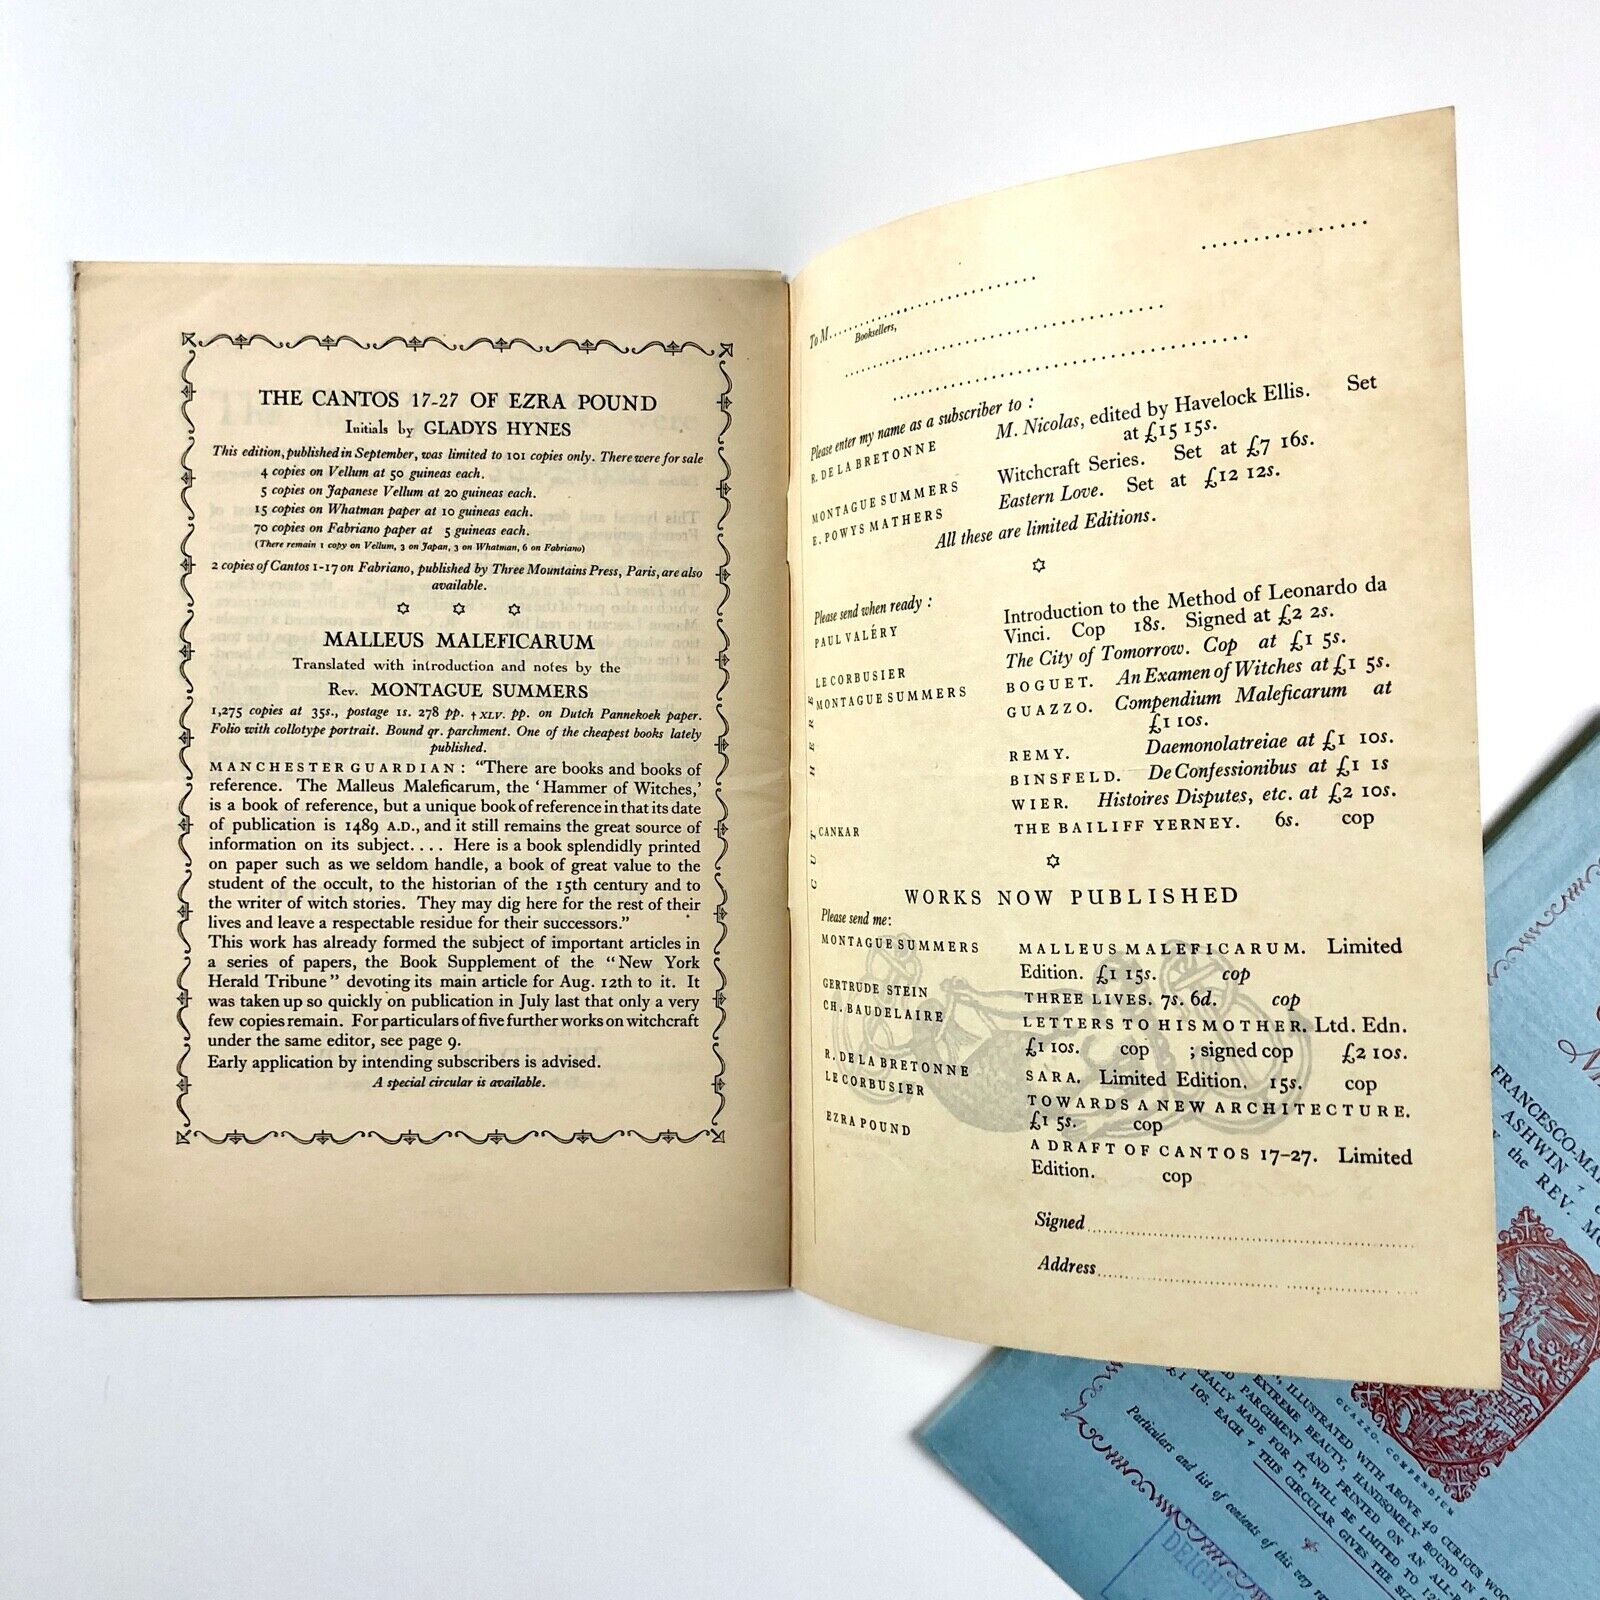 THE CANTOS 17-27 OF EZRA POUND
Initials by GLADYS HYNES
This edition, published in September, was limited to 101 copies only. There were for sale
4 copies on Vellum at 50 guineas each.
5 copies on Japanese Vellum at 20 guineas each.
15 copies on Whatman paper at 10 guineas each.
70 copies on Fabriano paper at 5 guineas each.
(There remain 1 copy on Vellum, 3 on Japan, 3 on Whatman, 6 on Fabriano)
2 copies of Cantos 1-17 on Fabriano, published by Three Mountains Press, Paris, are also
available.
MALLEUS MALEFICARUM
Translated with introduction and notes by the
Rev. MONTAGUE SUMMERS
1,275 copies at 35s., postage 1s. 278 pp. †XLV. pp. on Dutch Pannekoek paper.
Folio with collotype portrait. Bound qr. parchment. One of the cheapest books lately
published.
MANCHESTER GUARDIAN: "There are books and books of
reference. The Malleus Maleficarum, the 'Hammer of Witches,'
is a book of reference, but a unique book of reference in that its date
of publication is 1489 A.D., and it still remains the great source of
information on its subject.... Here is a book splendidly printed
on paper such as we seldom handle, a book of great value to the
student of the occult, to the historian of the 15th century and to
the writer of witch stories. They may dig here for the rest of their
lives and leave a respectable residue for their successors."
This work has already formed the subject of important articles in
a series of papers, the Book Supplement of the "New York
Herald Tribune" devoting its main article for Aug. 12th to it. It
was taken up so quickly on publication in July last that only a very
few copies remain. For particulars of five further works on witchcraft
under the same editor, see page 9.
Early application by intending subscribers is advised.
A special circular is available.
To M.
Booksellers,
Please enter my name as a subscriber to :
R. DE LA BRETONNE M. Nicolas, edited by Havelock Ellis. Set
at £15 15s.
MONTAGUE SUMMERS Witchcraft Series. Set at £7 16s.
E. POWYS MATHERS Eastern Love. Set at £12 12s.
All these are limited Editions.
Please send when ready :
PAUL VALÉRY Introduction to the Method of Leonardo da
Vinci. Cop 18s. Signed at £2 2s.
LE CORBUSIER The City of Tomorrow. Cop at £1 5s.
MONTAGUE SUMMERS BOGUET. An Examen of Witches at £1 5s.
GUAZZO. Compendium Maleficarum at
£1 10s.
REMY. Daemonolatreiae at £1 10s.
BINSFELD. De Confessionibus at £1 1s
WIER. Histoires Disputes, etc. at £2 10s.
CANKAR THE BAILIFF YERNEY. 6s. cop
CUT HERE
WORKS NOW PUBLISHED
Please send me:
MONTAGUE SUMMERS MALLEUS MALEFICARUM. Limited
Edition. £1 15s. cop
GERTRUDE STEIN THREE LIVES. 7s. 6d. cop
CH. BAUDELAIRE LETTERS TO HIS MOTHER. Ltd. Edn.
£1 10s. cop ; signed cop £2 10s.
R. DE LA BRETONNE SARA. Limited Edition. 15s. cop
LE CORBUSIER TOWARDS A NEW ARCHITECTURE.
£1 5s. cop
EZRA POUND A DRAFT OF CANTOS 17–27. Limited
Edition. cop
Signed
Address
FRANCESCO-MA
ASHWIN
the REV. MO
GUAZZO, COMPENDIUM
ILLUSTRATED WITH ABOVE 40 CURIOUS WOO
EXTREME BEAUTY, HANDSOMELY BOUND IN
PARCHMENT AND PRINTED ON AN ALL-
CIALLY MADE FOR IT, WILL BE LIMITED TO 12
£1 10S. EACH THIS CIRCULAR GIVES THE SIZE
Particulars and list of contents of this very
DEIGHT